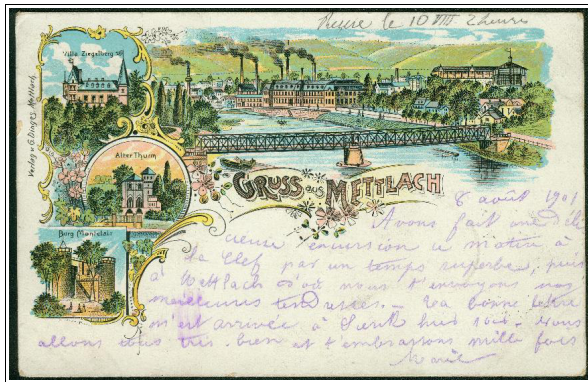 Reçue le 10 VIII 2 heures
Villa Ziegelberg
Verlag v. G. Dinges, Mettlach.
Alter Thurm
Burg Montclair
GRUSS aus METTLACH
8 août 1901
Avons fait une déli
cieuse excursion ce matin à
la Clef par un temps superbe, puis
à Mettlach d'où nous t'envoyons nos
meilleures tendresses. - Ta bonne lettre
m'est arrivée à Sierk hier soir. Nous
allons tous très bien et t'embrassons mille fois